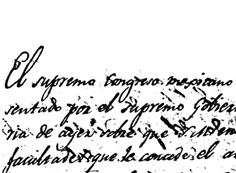 El supremo Congreso mexicano
sentado por el supremo Gobier
ria de ayer sobre que
facultades que le concede el